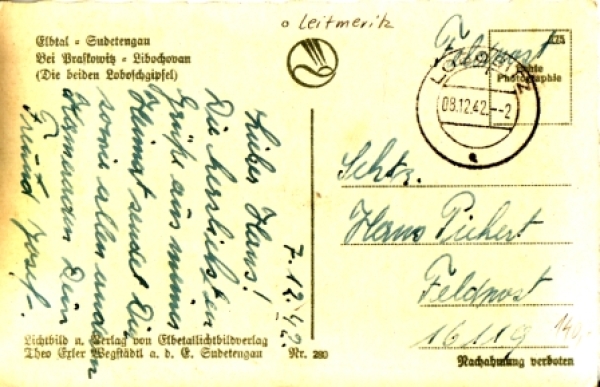 o Leitmeritz
Elbtal - Sudetengau
Bei Praskowitz - Libochovan
(Die beiden Loboschgipfel)
Feldpost
Echte
Photographie
08.12.42.--2
a
7.12.42.
Lieber Hans!
Die herzlichsten
Grüße aus meines
Heimat sendet Dir
sowie allen anderen
Kameraden Dein
Freund Josef.
Schtz.
Hans Pichert
Feldpost
16119
140,-
Lichtbild u. Verlag von Elbetallichtbildverlag
Theo Exler Wegstädtl a. d. E. Sudetengau Nr. 280
Nachahmung verboten